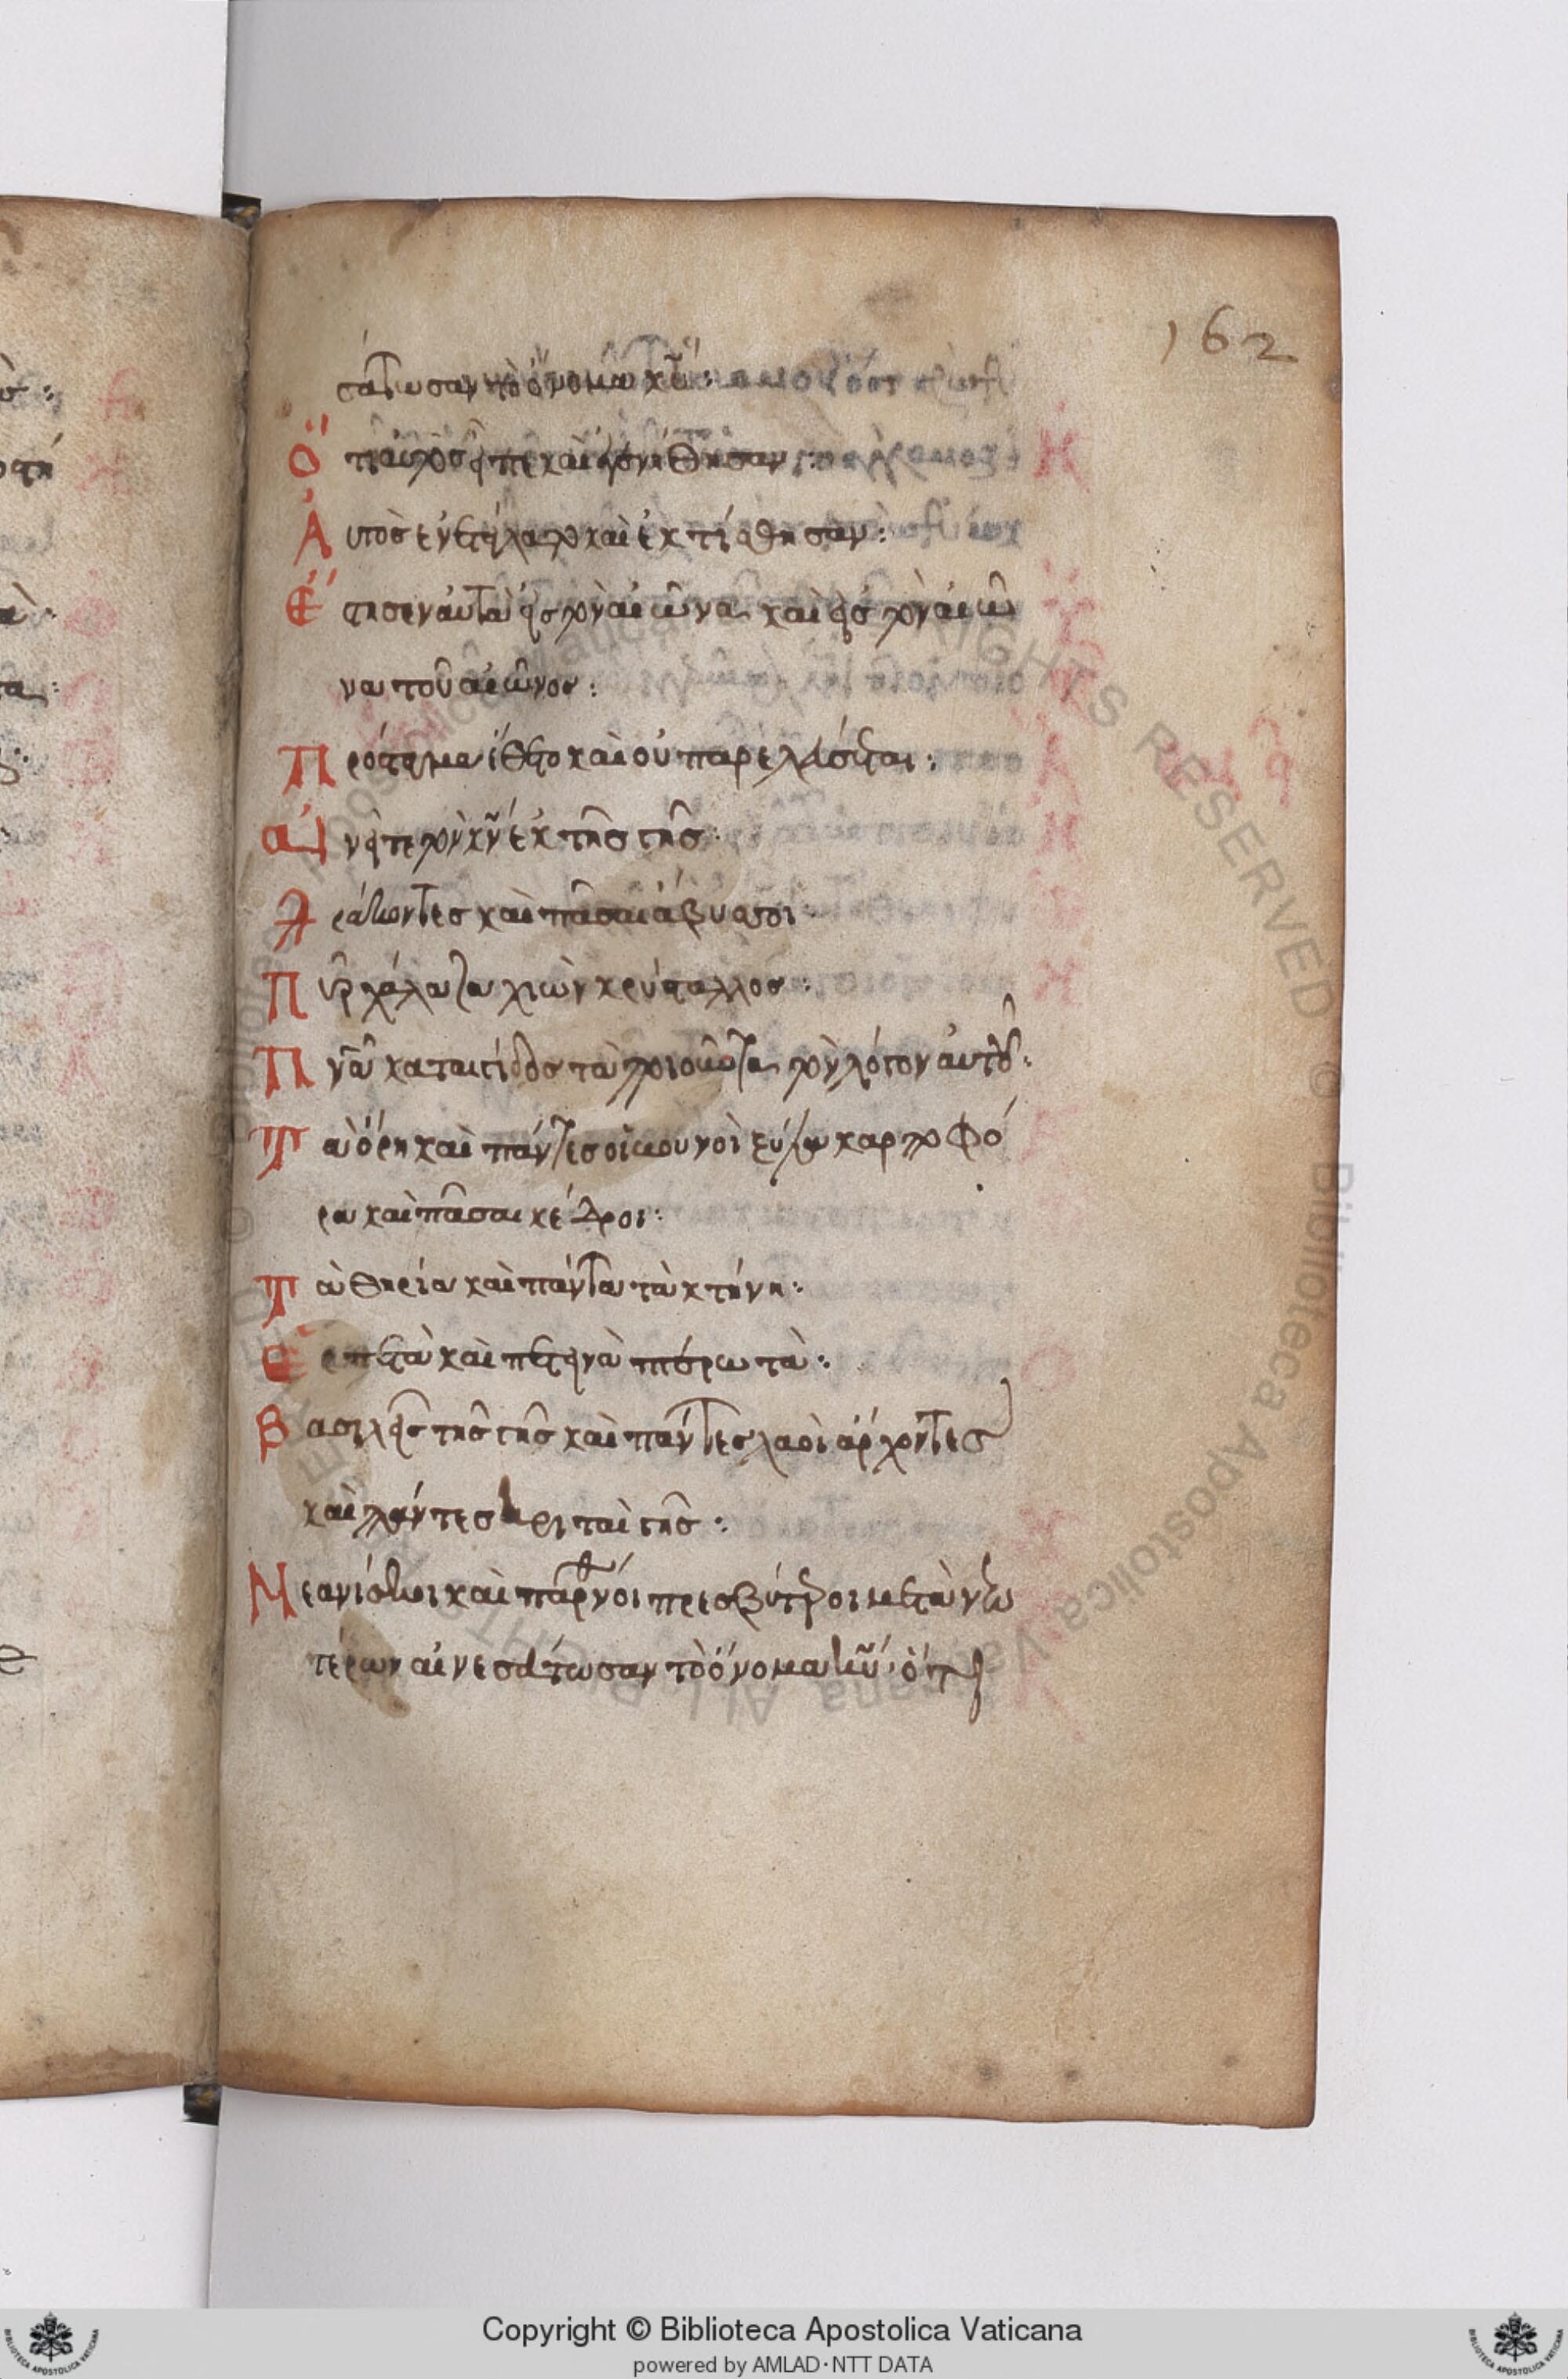 162
σάτωσαν τὸ ὄνομα κῡ:
Ὅτι αὐτὸς εἶπε καὶ ἐγενήθησαν:
Αὐτὸς ἐνετείλατο καὶ ἐκτίσθησαν:
Ἔστησεν αὐτὰ εἰς τὸν αἰῶνα καὶ εἰς τὸν αἰῶ
να τοῦ αἰῶνος:
Πρόσταγμα ἔθετο καὶ οὐ παρελεύσεται:
Αἰνεῖτε τὸν κν̄ ἐκ τῆς γῆς:
Δράκοντες καὶ πᾶσαι ἄβυσσοι
Πῦρ χάλαζα χιὼν κρύσταλλος:
Πνᾱ καταιγίδος τὰ ποιοῦντα τὸν λόγον αὐτοῦ:
Τὰ ὄρη καὶ πάντες οἱ βουνοὶ ξύλα καρποφό
ρα καὶ πᾶσαι κέδροι:
Τὰ θηρία καὶ πάντα τὰ κτήνη:
Ἑρπετὰ καὶ πετεινὰ πτερωτὰ:
Βασιλεῖς τῆς γῆς καὶ πάντες λαοὶ ἄρχοντες
καὶ πάντες κριταὶ γῆς:
Νεανίσκοι καὶ παρθένοι πρεσβύτεροι μετὰ νεω
τέρων αἰνεσάτωσαν τὸ ὄνομα κῡ ὅτι
Copyright © Biblioteca Apostolica Vaticana
powered by AMLAD·NTT DATA